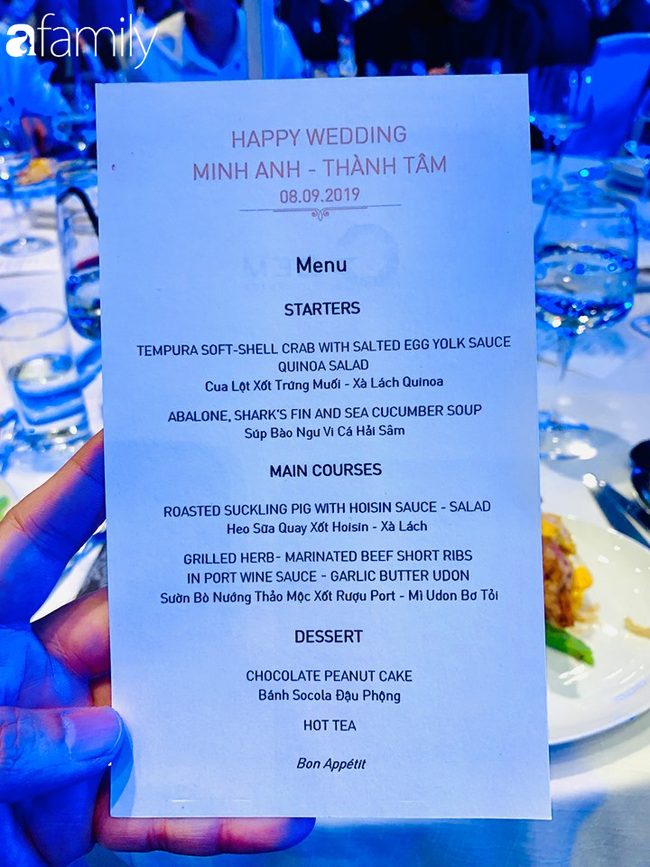 afamily
HAPPY WEDDING
MINH ANH - THÀNH TÂM
08.09.2019
Menu
STARTERS
TEMPURA SOFT-SHELL CRAB WITH SALTED EGG YOLK SAUCE
QUINOA SALAD
Cua Lột Xốt Trứng Muối - Xà Lách Quinoa
ABALONE, SHARK'S FIN AND SEA CUCUMBER SOUP
Súp Bào Ngư Vi Cá Hải Sâm
MAIN COURSES
ROASTED SUCKLING PIG WITH HOISIN SAUCE - SALAD
Heo Sữa Quay Xốt Hoisin - Xà Lách
GRILLED HERB- MARINATED BEEF SHORT RIBS
IN PORT WINE SAUCE - GARLIC BUTTER UDON
Sườn Bò Nướng Thảo Mộc Xốt Rượu Port - Mì Udon Bơ Tỏi
DESSERT
CHOCOLATE PEANUT CAKE
Bánh Socola Đậu Phộng
HOT TEA
Bon Appétit